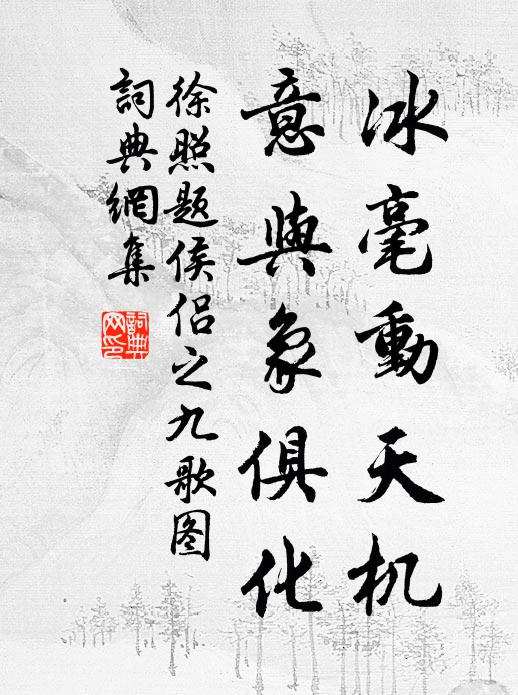 冰毫動天机
意與象俱化
徐照题侯侣之九歌图
詞典網集
詞典网印